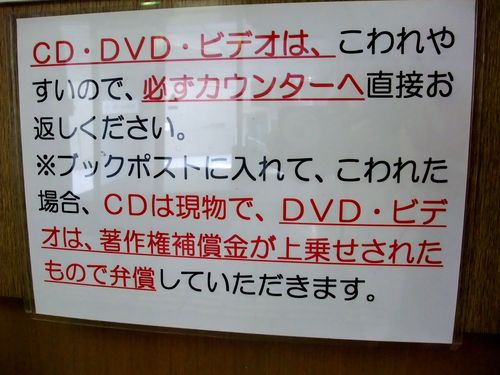 CD・DVD・ビデオは、こわれや
すいので、必ずカウンターへ直接お
返しください。
※ブックポストに入れて、こわれた
場合、CDは現物で、DVD・ビデ
オは、著作権補償金が上乗せされた
もので弁償していただきます。